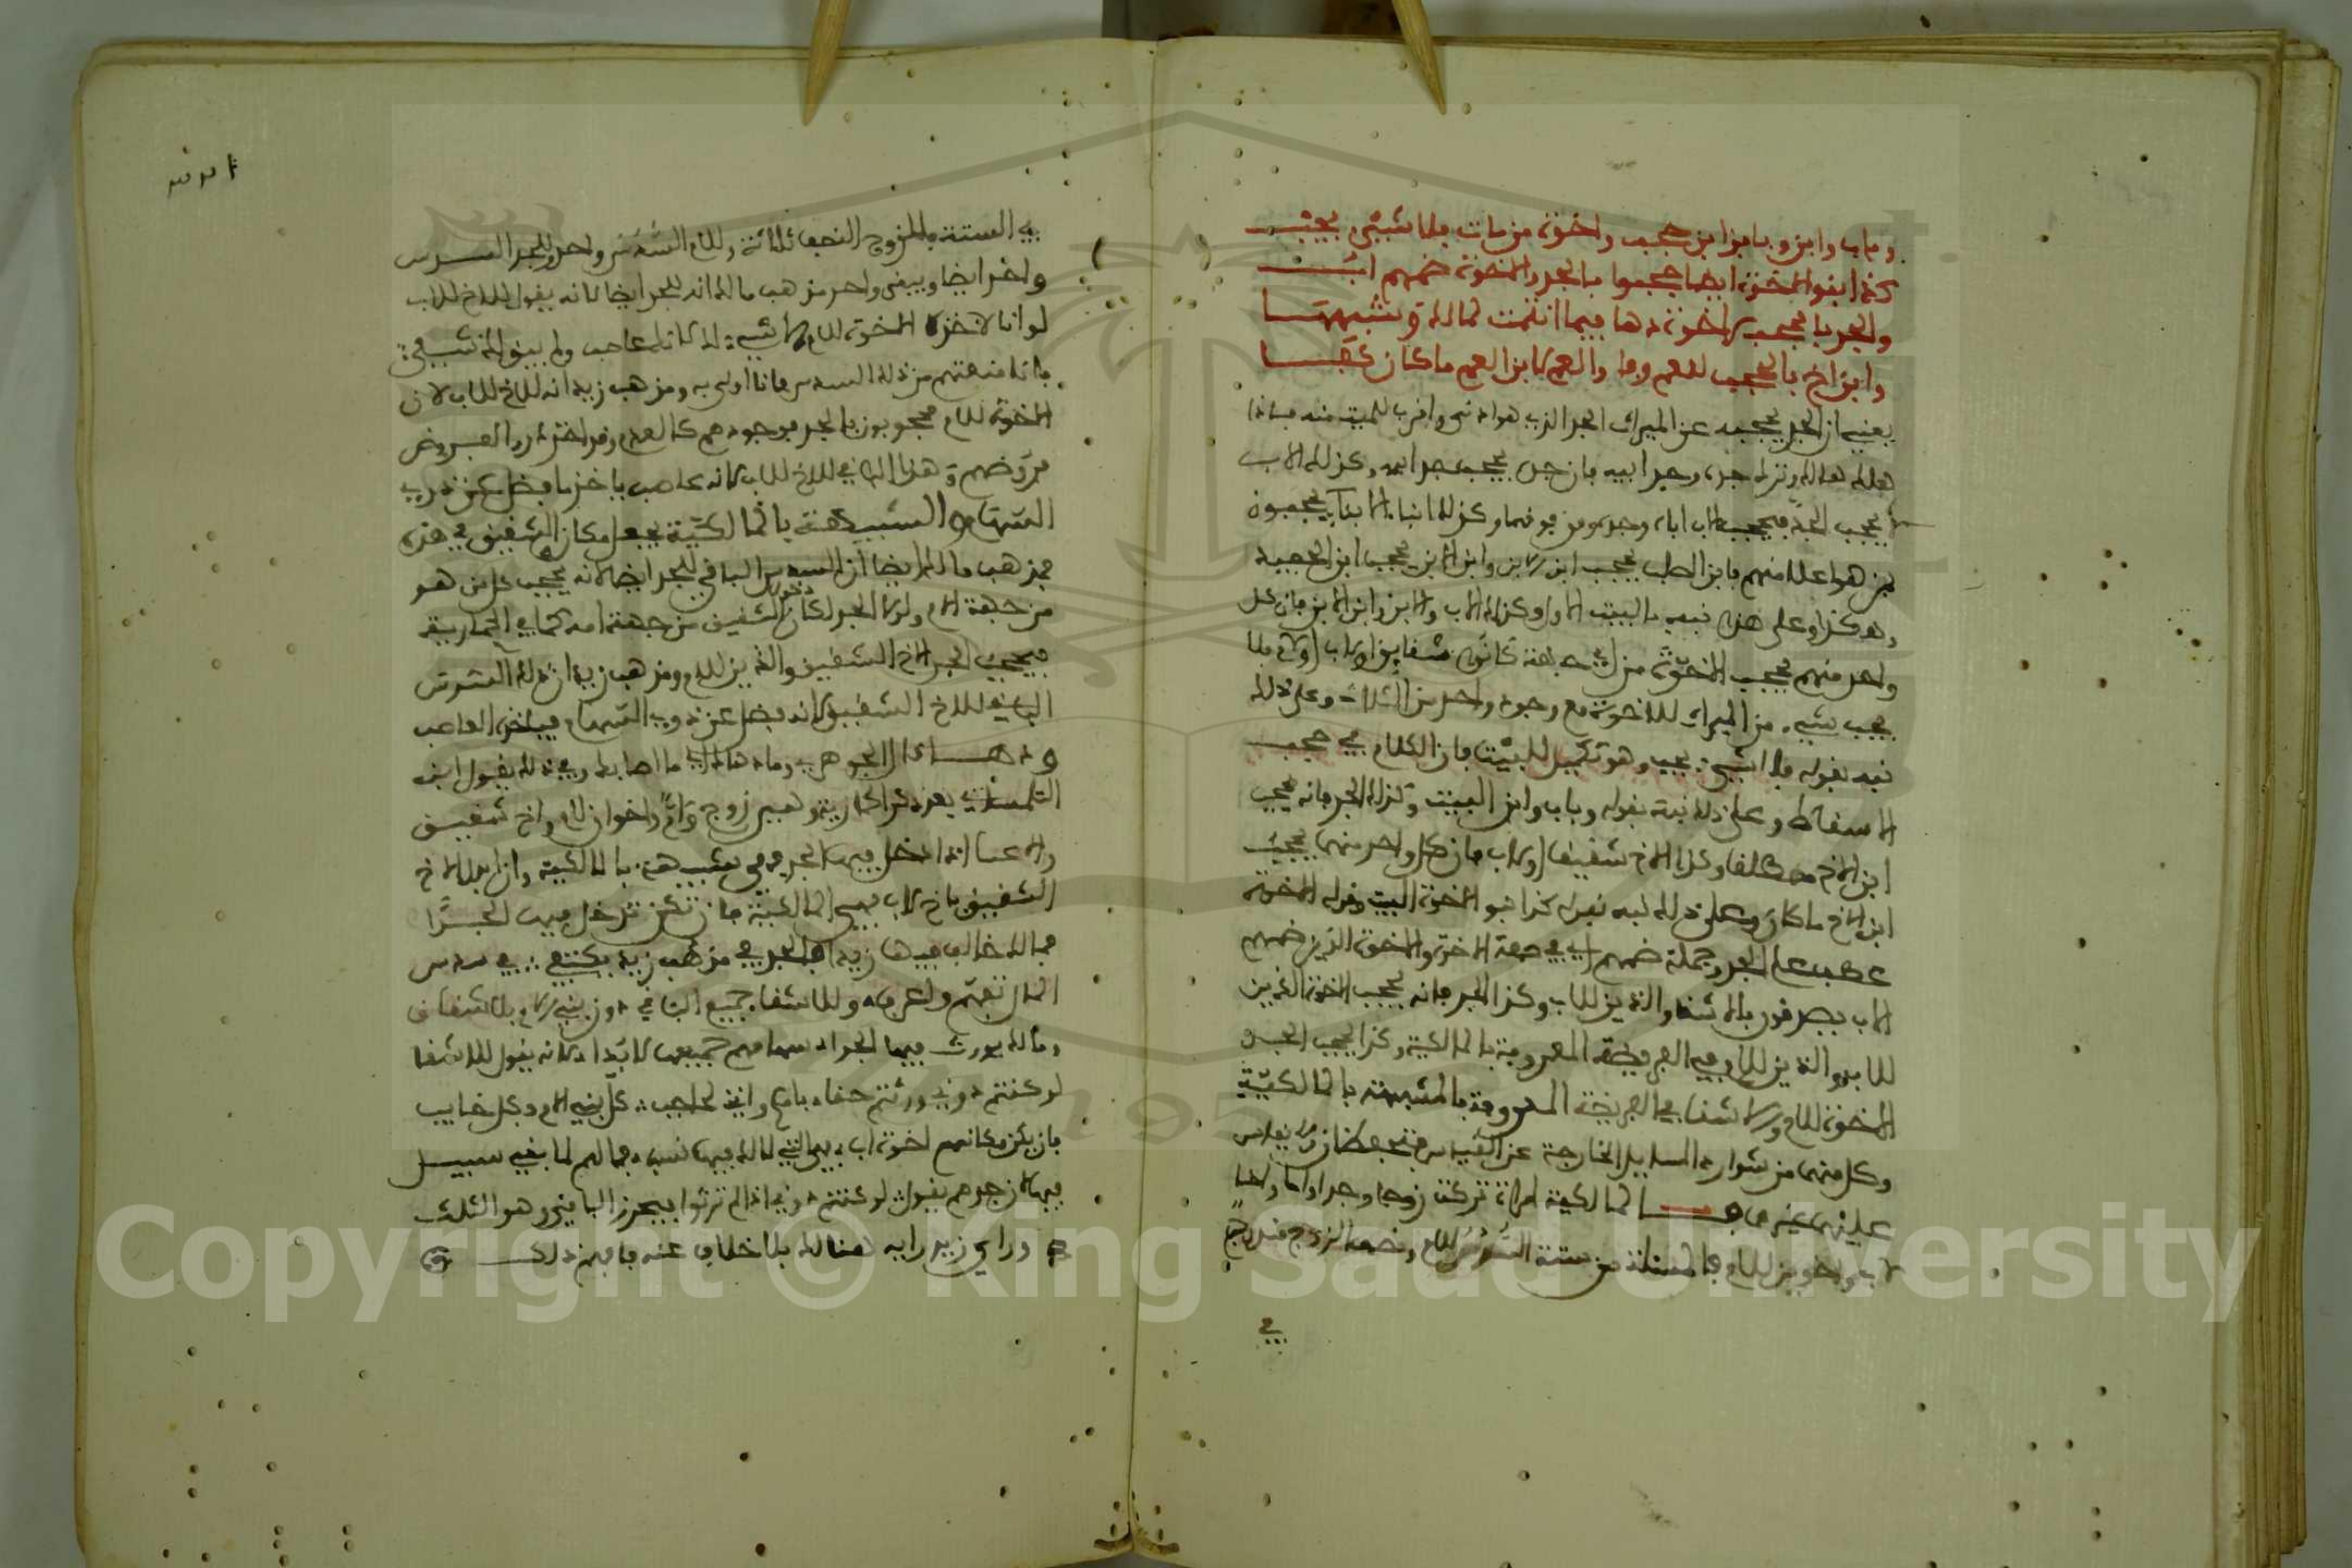 وباب وابن وبابن ابن حجب واخوة من مات بلا شيء يجب
كذا بنو الاخوة ايضا حجبوا بالجد والاخوة ضمهم اب
والجد بالحجب لاخوة دها فيما انتمت لمالك وشبهها
وابن اخ بالحجب للعم وفا والعم لابن العم ما كان كفا
يعني ان الجد يحجبه عن الميراث الجد الذي هو ادنى واقرب للميت منه فاذا
هلك هالك وترك جده وجد ابيه فان جده يحجب جد ابيه وكذلك الاب
يحجب الجد فيحجب الاب اباه وجده ومن فوقهما وكذلك ابناء الابنا يحجبون
بمن هو اعلا منهم فابن الصلب يحجب ابن الابن وابن الابن يحجب ابن الحفيد
وهكذا وعلى هذا نبه بالبيت الاول وكذلك الاب والابن وابن الابن فان كل
واحد منهم يحجب الاخوة من اي جهة كانوا شقايق او لاب او لام فلا
يجب شيء من الميراث للاخوة مع وجود واحد من الثلاث وعلى ذلك
نبه بقوله فلا شيء يجب وهو تكميل للبيت فان الكلام في حجب
الاسقاط وعلى ذلك نبه بقوله وباب وابن البيت وكذلك الجد فانه يحجب
ابن الاخ مطلقا وكذا الاخ شقيقا او لاب فان كل واحد منهما يحجب
ابن الاخ ما كان وعلى ذلك نبه بقوله كذا بنو الاخوة البيت وقوله الاخوة
عطف على الجد وجملة ضمهم اب في صفة الاخوة والاخوة الذين ضمهم
الاب يصدقون بالاشقا والذين للاب وكذا الجد فانه يحجب الاخوة الذين
للاب والذين للام في الفريضة المعروفة بالمالكية وكذا يحجب الجد
الاخوة للام والاشقا في الفريضة المعروفة بالمشبهة بالمالكية
وكل منهما من شوارد المسايل الخارجة عن القياس فتحفظان ولا يقاس
عليهما غيرهما فالمالكية امراة تركت زوجا وجدا واما واخا
لاب واخوين للام فالمسئلة من ستة السدس للام ونصف الزوج
في
في الستة فللزوج النصف ثلاثة وللام السدس واحد وللجد السدس
واحد ايضا ويبقى واحد مذهب مالك انه للجد ايضا لانه يقول للاخ للاب
لو انا لا اخذه الاخوة للام لا شيء لك لانك عاصب ولم يبق لك شيء
فانا منعتهم من ذلك السدس فانا اولى به ومذهب زيد انه للاخ للاب لان
الاخوة للام محجوبون بالجد فوجودهم كالعدم وقد اخذ ذووا الفروض
فروضهم وهذا الباقي للاخ للاب لانه عاصب ياخذ ما فضل عن ذوي
السهام والشبيهة بالمالكية يجعل مكان الشقيق في هذه
فمذهب مالك ايضا ان السدس الباقي للجد ايضا لانه يحجب كل من هو
من جهة الام ولولا الجد لكان الشقيق من جهة امه كما في الحمارية
فيحجب الجد الاخ الشقيق والذين للام ومذهب زيد ان ذلك السدس
الباقي للاخ الشقيق لانه فضل عن ذوي السهام فياخذه العاصب
التلمساني بعد ذكر الحمارية وهي زوج وام واخوان لام واخ شقيق
والاعما اذا دخل فيها الجد فهي شبيهة بالمالكية وان ابدل الاخ
الشقيق باخ لاب فهي المالكية فان تكن تدخل فيها الجدا
فمالك خالف فيها زيدا فالجد في مذهب زيد يكتفي في سدس
ومالك يورث فيها الجد اسهامهم جميعها لا بدا لانه يقول للاشقا
لو كنتم دوني ورثتم حقا بام وانني لحاجب كل بني الام وكل خايب
فان يكن مكانهم اخوة اب فهي التي لمالك فيها نسب فما لهم لما بقي سبيل
فيها لان جدهم يقول لو كنتم دوني اذا لم ترثوا فيحرز الباقي وهو الثلث
وراي زيد رايه هنالك بلا خلاف عنه فافهم ذلك